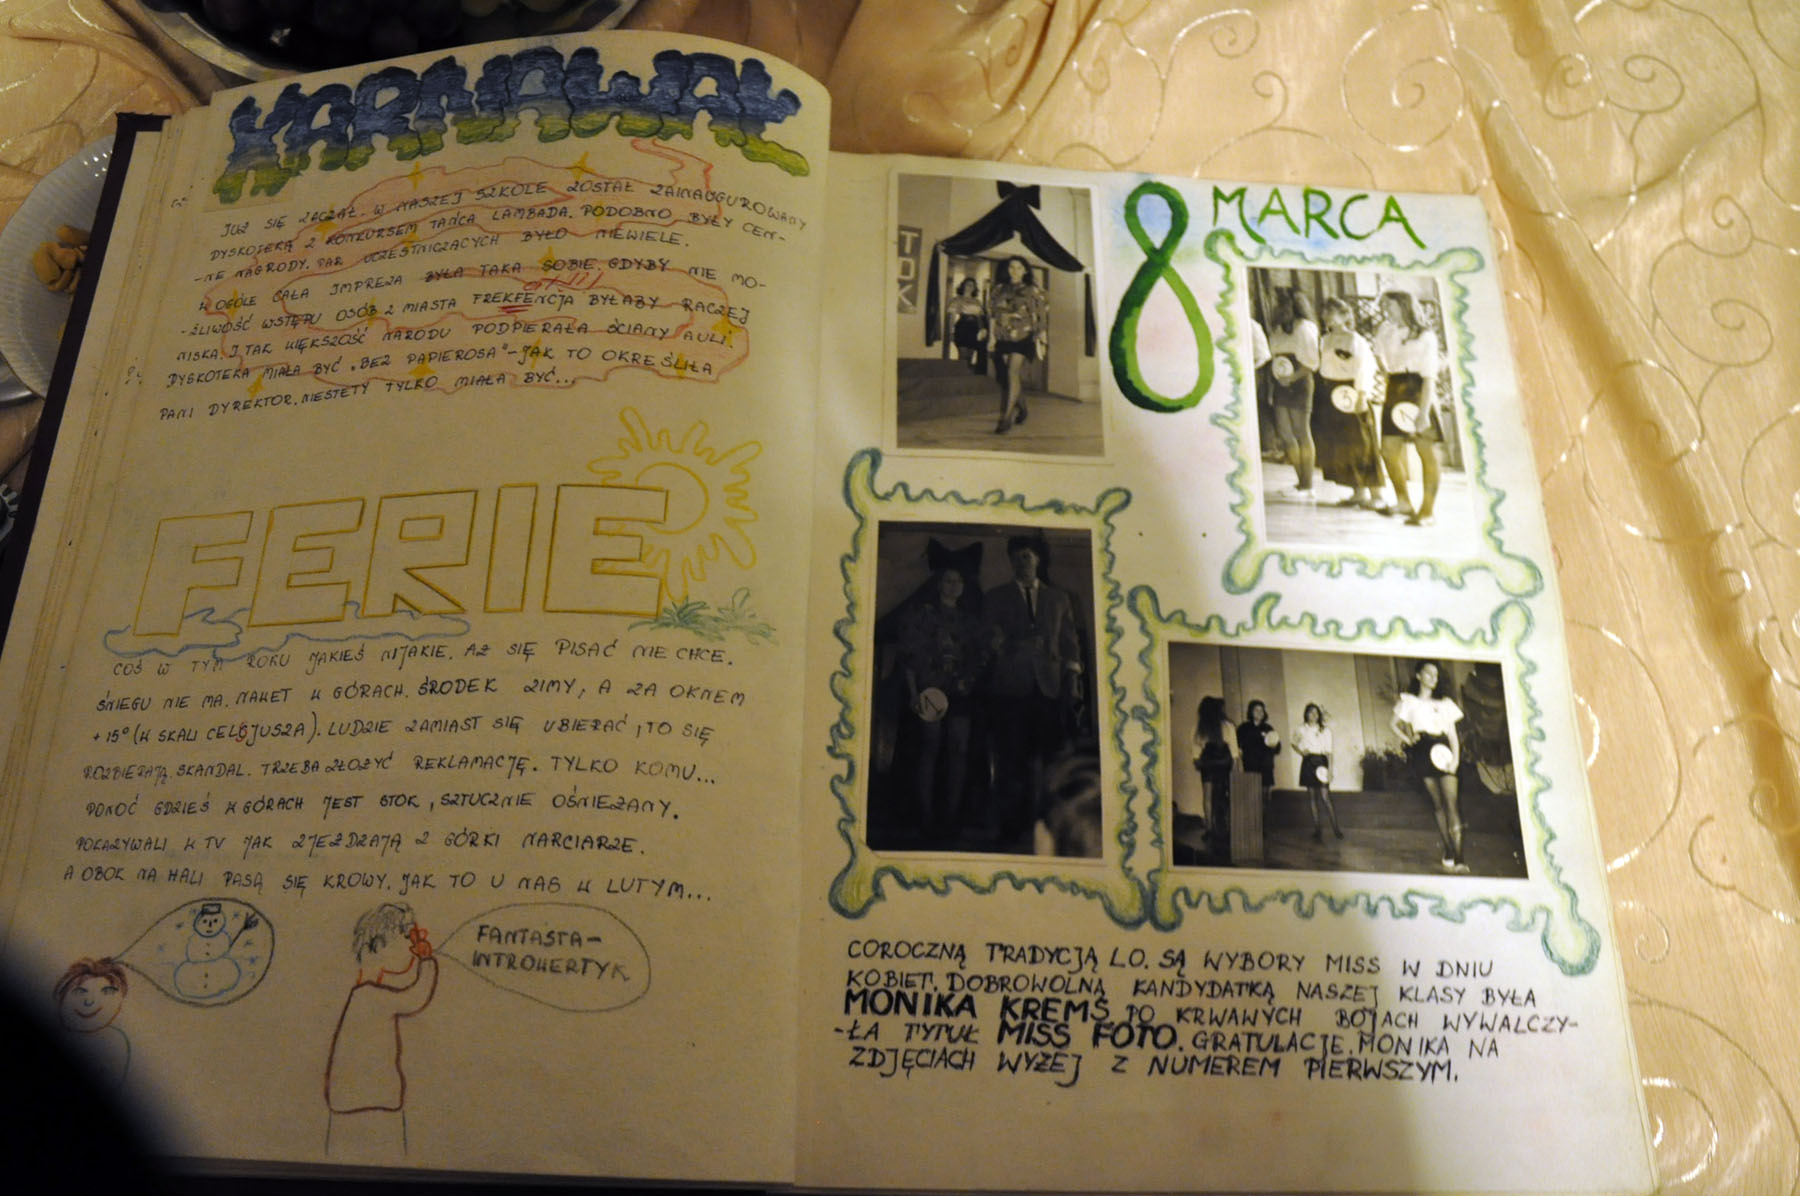 KARNAWAŁ
JUŻ SIĘ ZACZĄŁ. W NASZEJ SZKOLE ZOSTAŁ ZAINAUGUROWANY
DYSKOTEKĄ Z KONKURSEM TAŃCA LAMBADA. PODOBNO BYŁY CEN-
-NE NAGRODY. PAR UCZESTNICZĄCYCH BYŁO NIEWIELE.
W OGÓLE CAŁA IMPREZA BYŁA TAKA SOBIE. GDYBY NIE MO-
-ŻLIWOŚĆ WSTĘPU OSÓB Z MIASTA FREKFENCJA BYŁABY RACZEJ
NISKA. I TAK WIĘKSZOŚĆ NARODU PODPIERAŁA ŚCIANY AULI.
DYSKOTEKA MIAŁA BYĆ „BEZ PAPIEROSA" - JAK TO OKREŚLIŁA
PANI DYREKTOR. NIESTETY TYLKO MIAŁA BYĆ...
FERIE
COŚ W TYM ROKU JAKIEŚ NIJAKIE. AŻ SIĘ PISAĆ NIE CHCE.
ŚNIEGU NIE MA. NAWET W GÓRACH. ŚRODEK ZIMY, A ZA OKNEM
+15° (W SKALI CELSJUSZA). LUDZIE ZAMIAST SIĘ UBIERAĆ, TO SIĘ
ROZBIERAJĄ. SKANDAL. TRZEBA ZŁOŻYĆ REKLAMACJĘ. TYLKO KOMU...
PONOĆ GDZIEŚ W GÓRACH JEST STOK, SZTUCZNIE OŚNIEŻANY.
POKAZYWALI W TV JAK ZJEŻDŻAJĄ Z GÓRKI NARCIARZE.
A OBOK NA HALI PASĄ SIĘ KROWY. JAK TO U NAS W LUTYM...
FANTASTA-
INTROWERTYK
8 MARCA
TDK
3
1
1
COROCZNĄ TRADYCJĄ LO. SĄ WYBORY MISS W DNIU
KOBIET. DOBROWOLNĄ KANDYDATKĄ NASZEJ KLASY BYŁA
MONIKA KREMS. PO KRWAWYCH BOJACH WYWALCZY-
-ŁA TYTUŁ MISS FOTO. GRATULACJE. MONIKA NA
ZDJĘCIACH WYŻEJ Z NUMEREM PIERWSZYM.